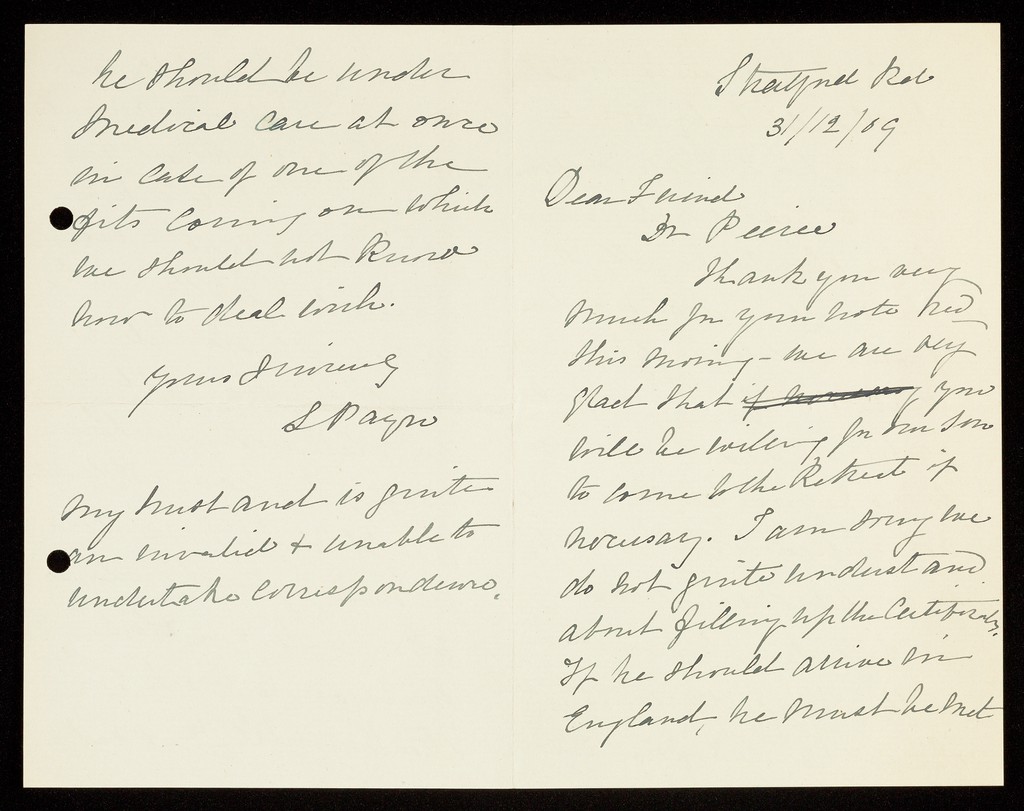 Stratford Rd
31/12/09
Dear Friend
Dr Peirce
Thank you very
much for your note recd
this morning - we are very
glad that if necessary you
will be willing for our son
to come to the Retreat if
necessary. I am sorry we
do not quite understand
about filling up the Certificates.
If he should arrive in
England, he must be met
he should be under
medical care at once
in case of one of the
fits coming on which
we should not know
how to deal with.
Yours Sincerely
S Payne
My husband is quite
an invalid & unable to
undertake correspondence.